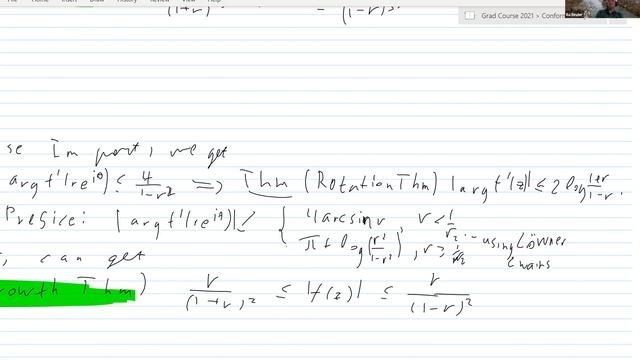 Home Insert Draw View Review View Help
Grad Course 2021 > Conform
(1+r) (1-r)³
se Im part, we get
arg f'(re^{iθ}) ≤ 4/(1-r²) ⟹ Thm (Rotation Thm) |arg f'(z)| ≤ 2 log (1+r)/(1-r)
Presice: |arg f'(re^{iθ})| ≤ { 4 arcsin r r < 1/√2
π + log (r²/(1-r²)), r ≥ 1/√2 - using Löwner
chains
, can get
rowth Thm) r/(1+r)² ≤ |f(z)| ≤ r/(1-r)²